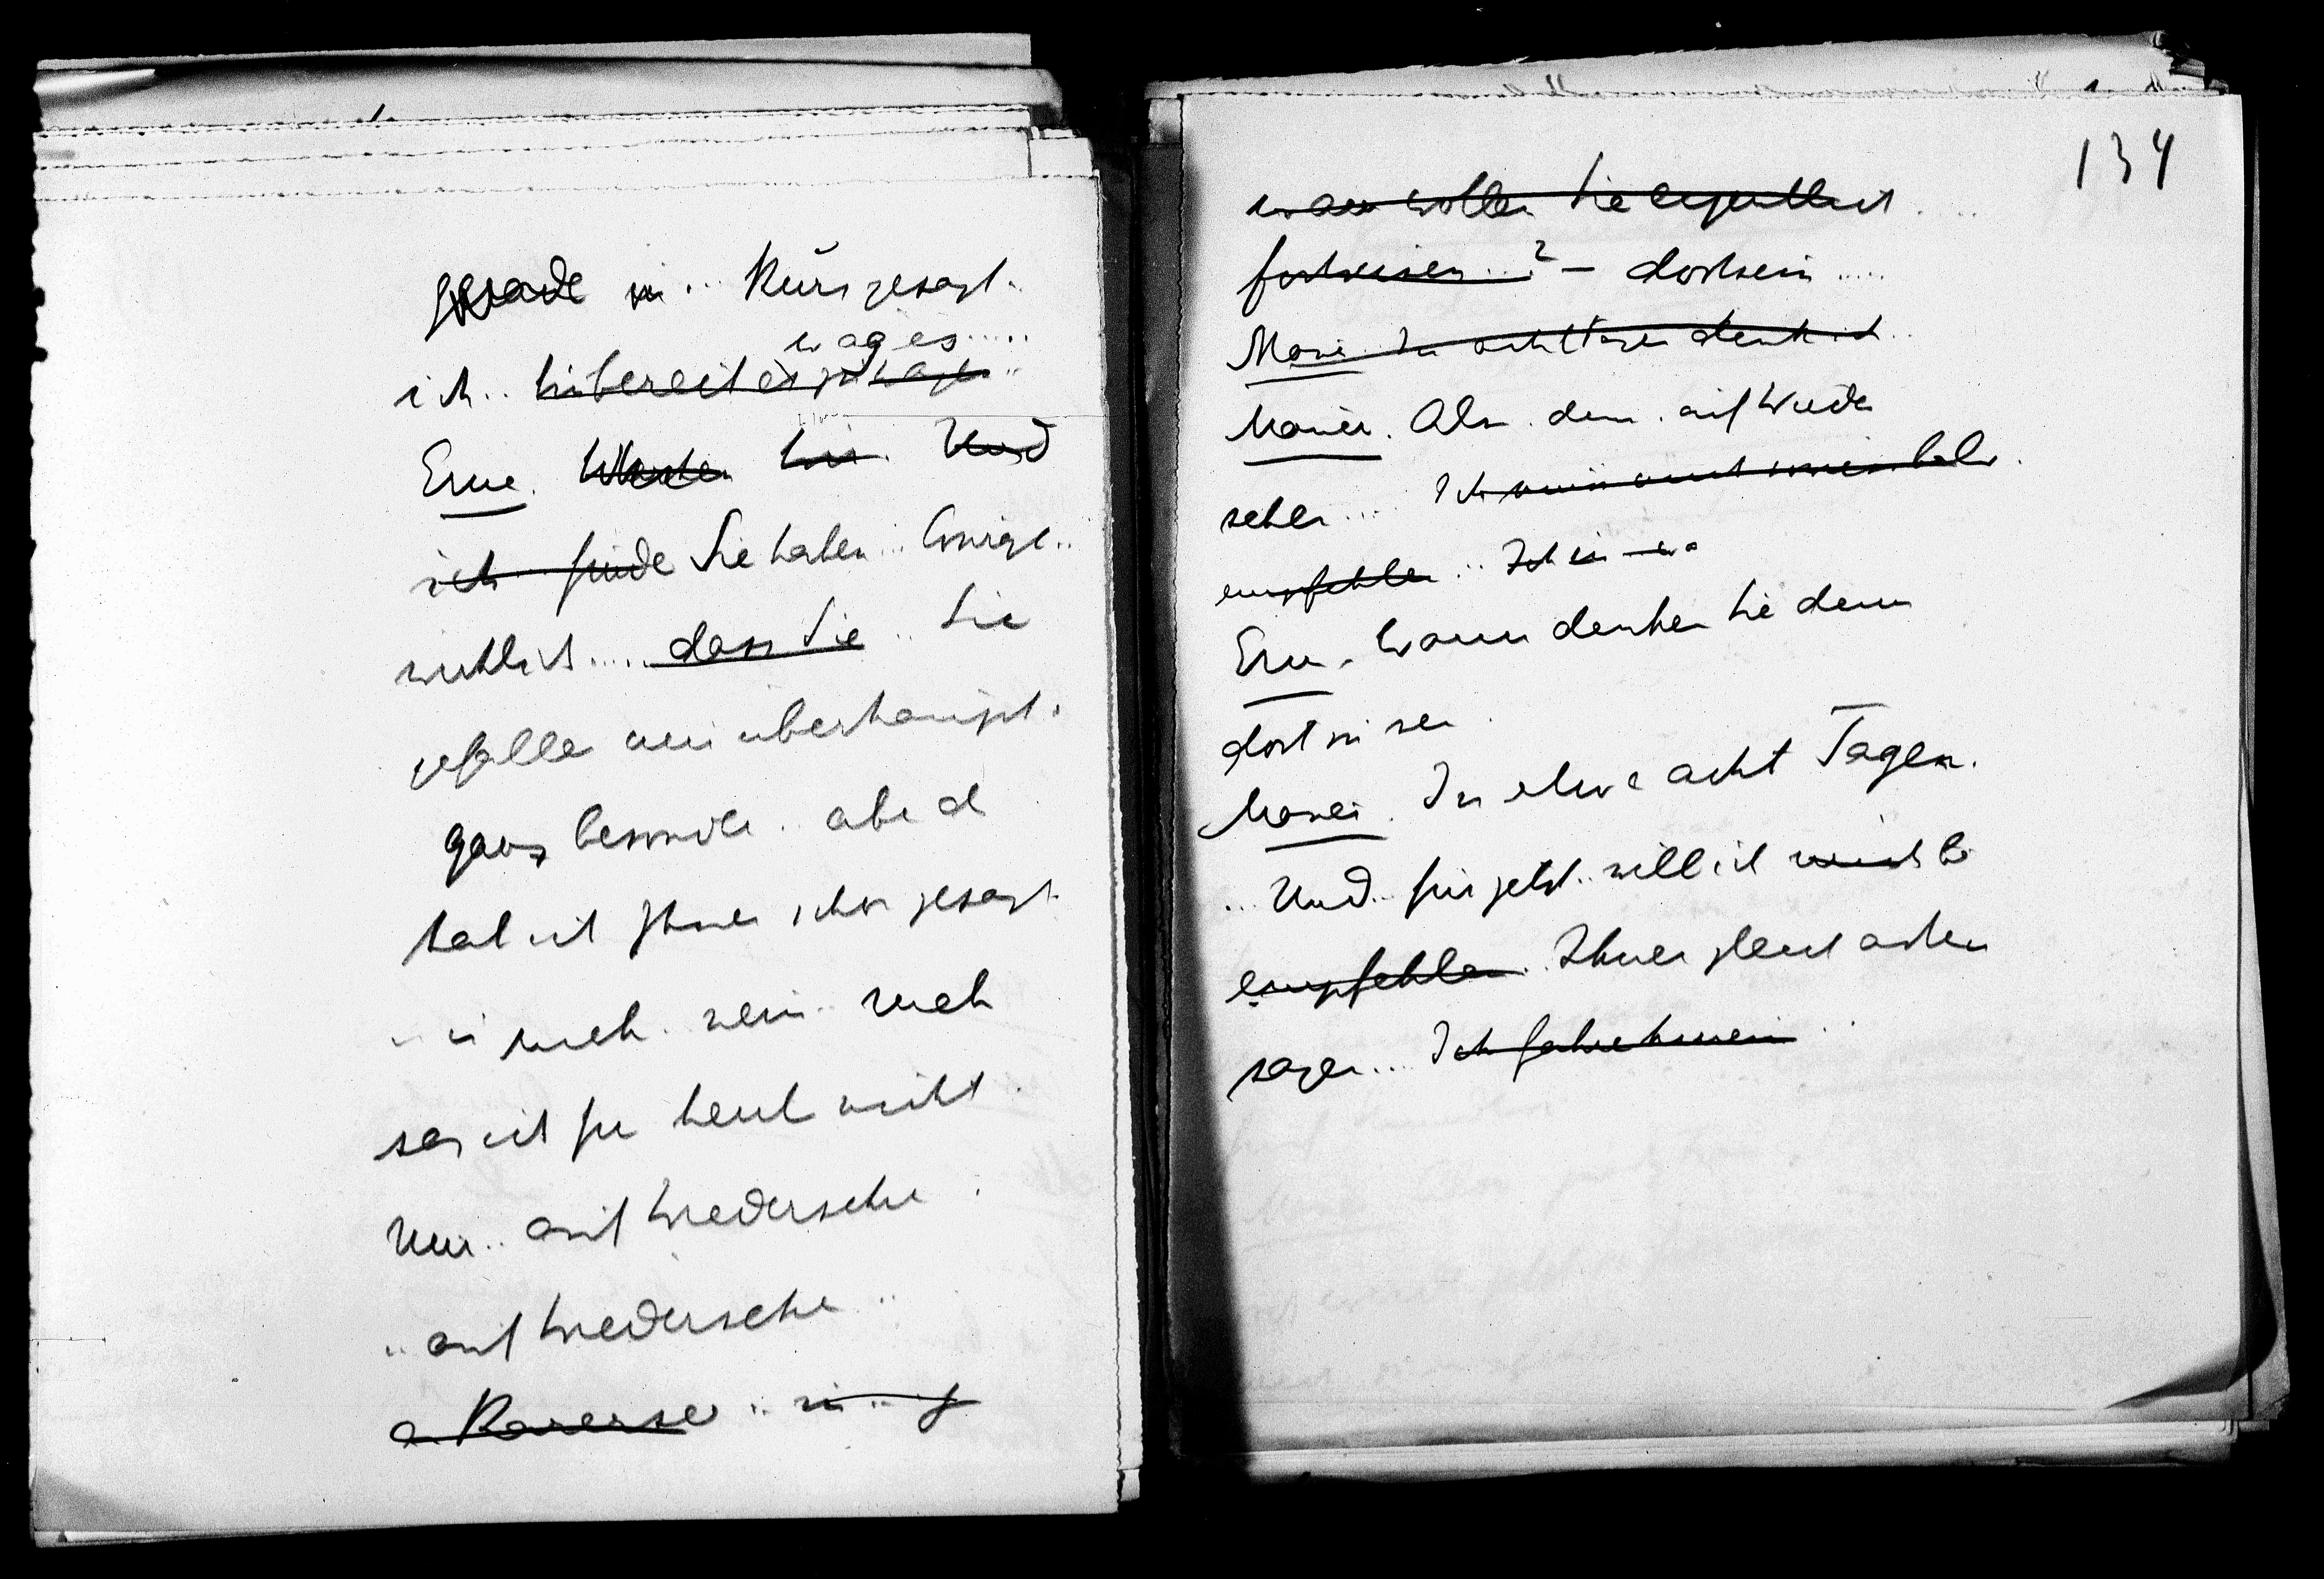 gerade in ... Kurz gesagt.
wag es .....
ich .. bin bereit es zu wagen ..
Erna. Und
ich finde Sie haben ... Courage ..
wirklich ..... dass Sie .. Sie
gefallen mir überhaupt.
ganz besonders . aber d
hab ich Ihnen schon gesagt.
mehr . nein .. mehr
sag ich für heut nicht .
Nur .. auf Wiedersehn .
.. auf Wiedersehn ..
134
wann wollen Sie eigentlich ....
fortreisen ...? – dort sein .....
Maurer. In acht Tagen denk ich ..
Maurer. Also . denn . auf Wieder
sehen ..... Ich muss mich . 
empfehlen ... Ich
Erna. Wann denken Sie denn
dort zu sein .
Maurer. In etwa acht Tagen.
... Und .. für jetzt .. will ich mich
empfehlen .. Ihnen gleich adieu
sagen .... Ich fahre ..